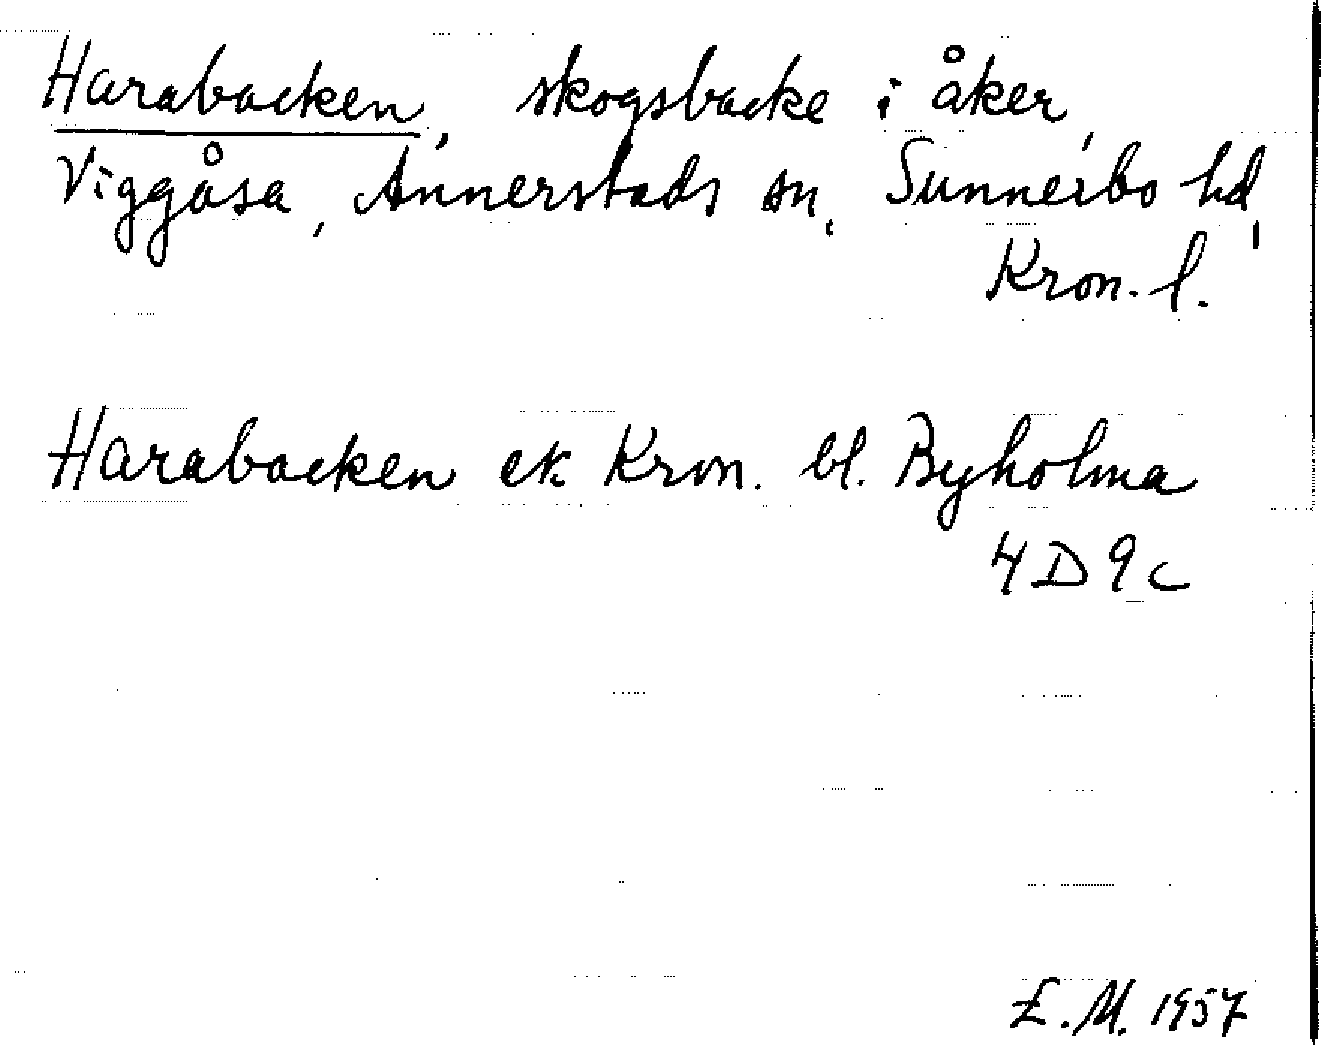 Harabacken, skogsbacke i åker,
Viggåsa, Annerstads sn, Sunnerbo hd,
Kron. l.
Harabacken ek Kron. bl. Byholma
4 D 9 c
E. M. 1957